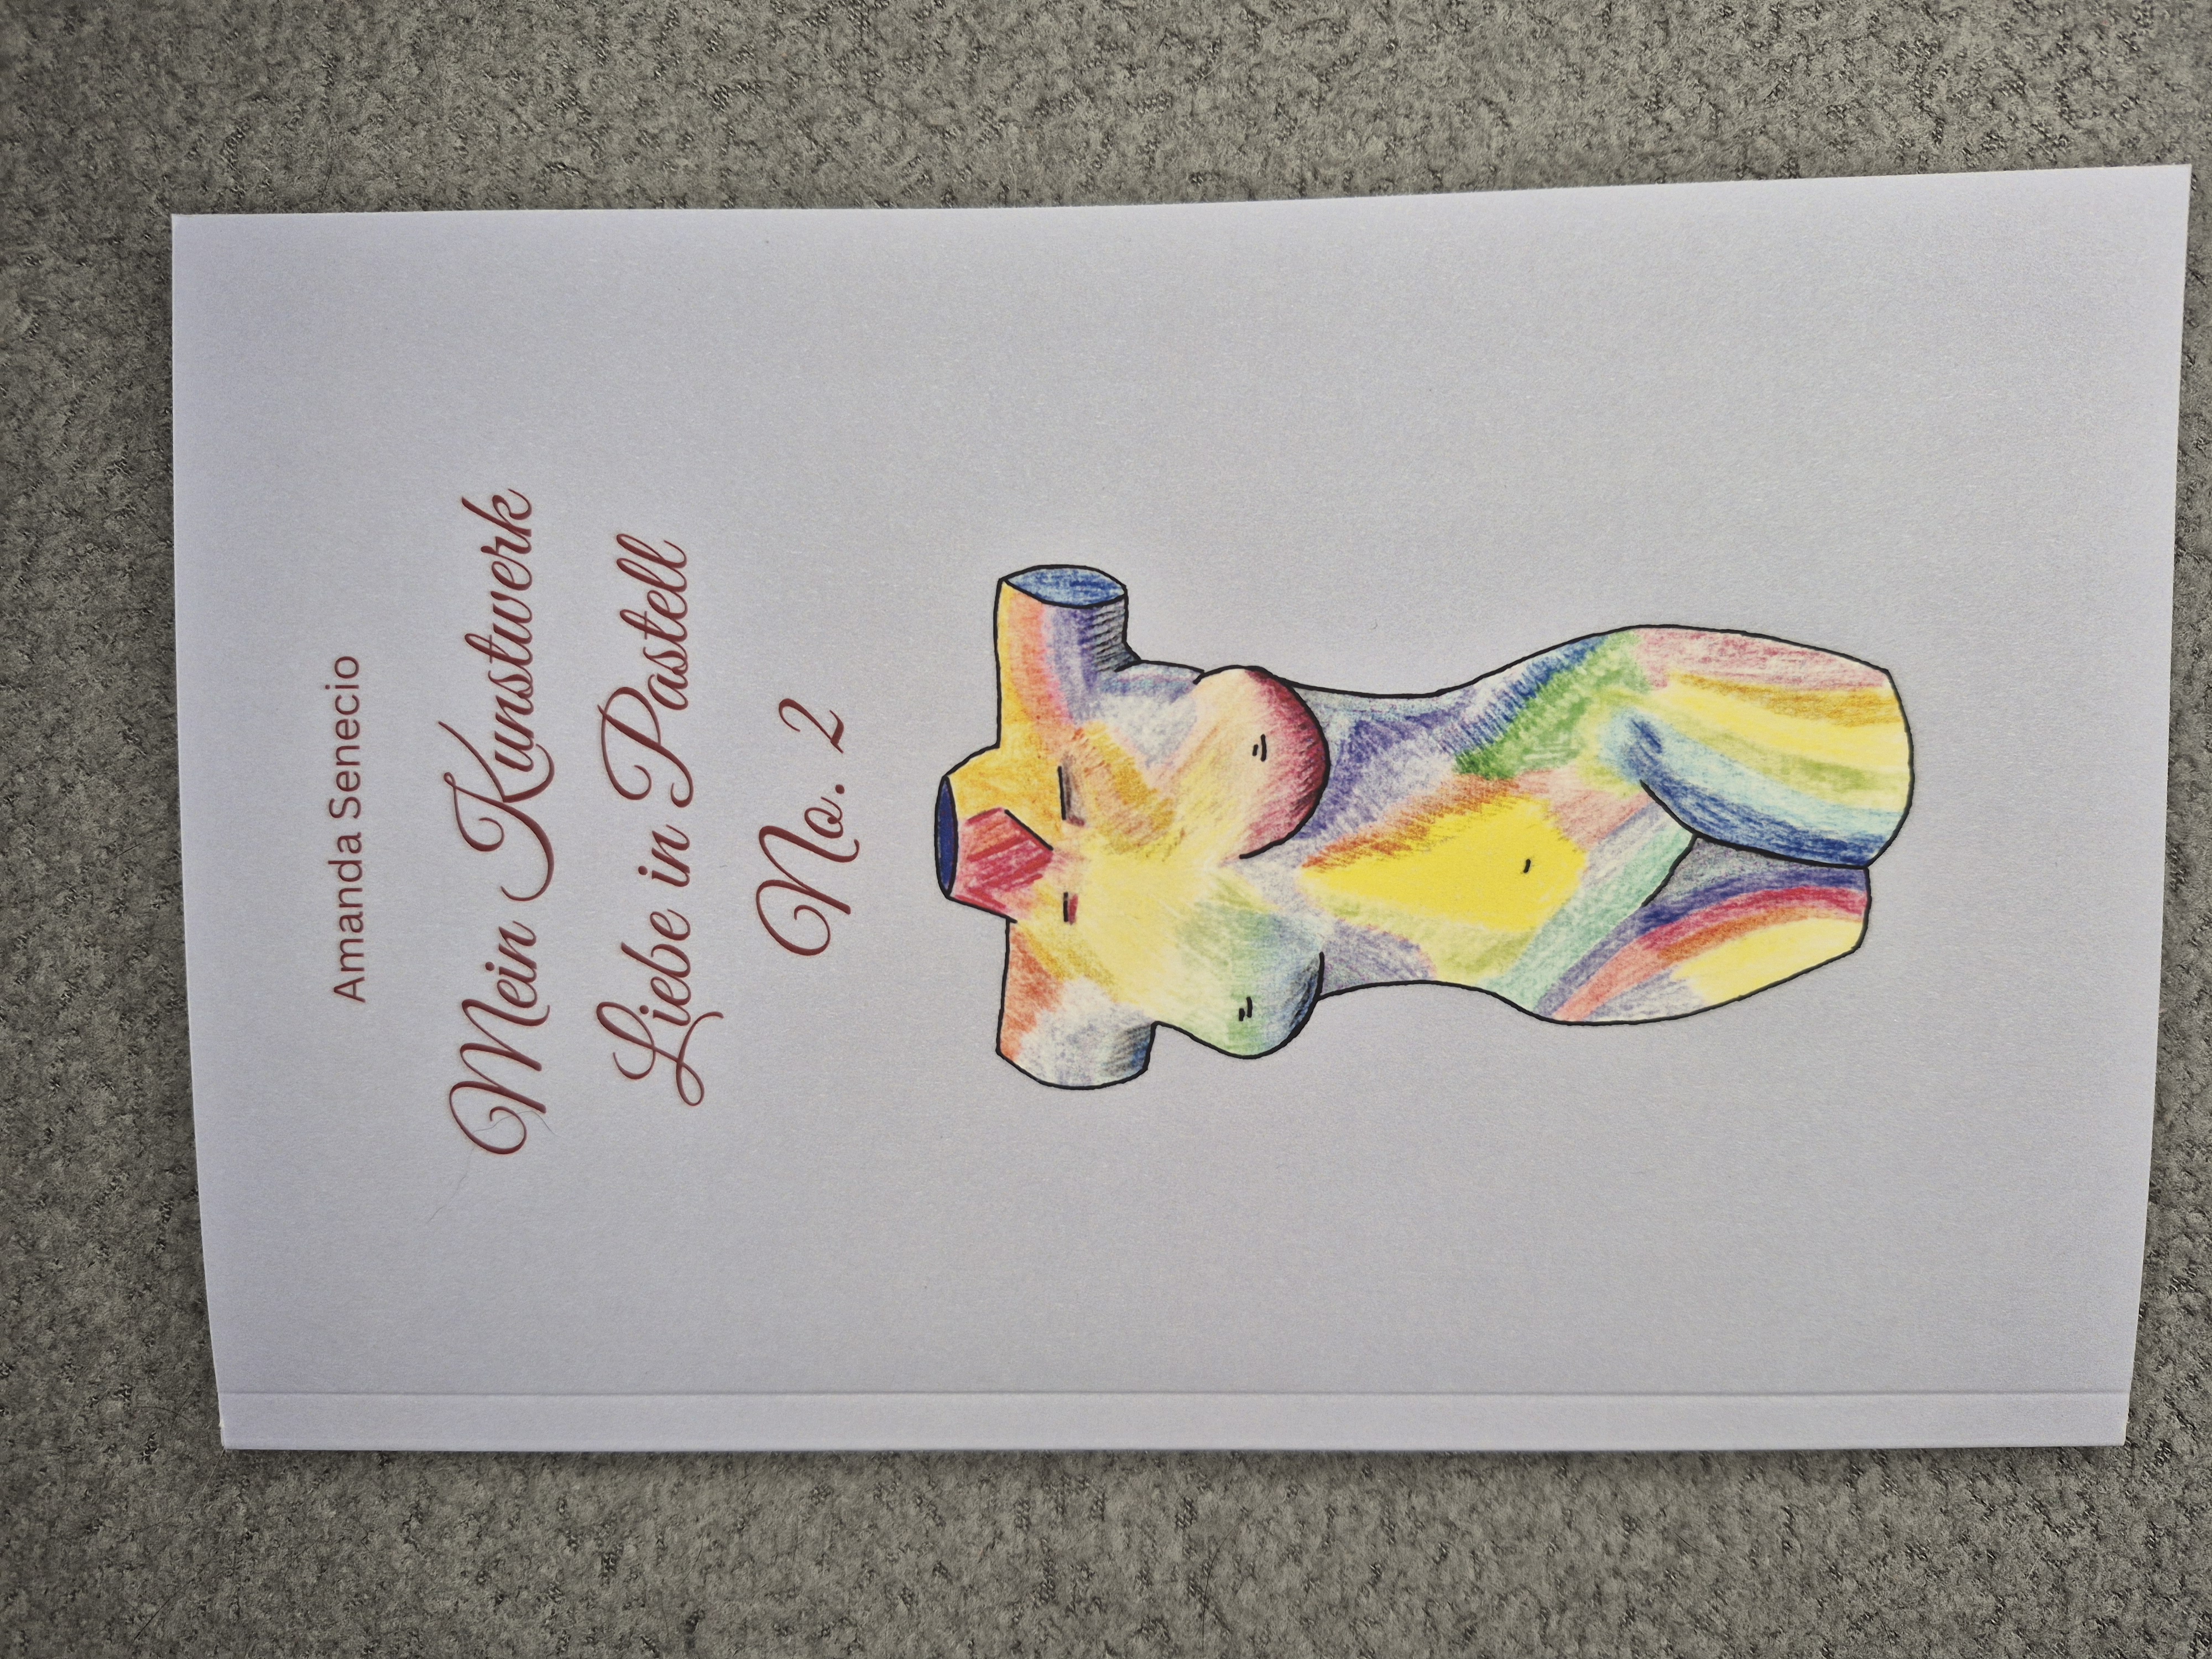 Amanda Senecio
Mein Kunstwerk
Liebe in Pastell
No. 2